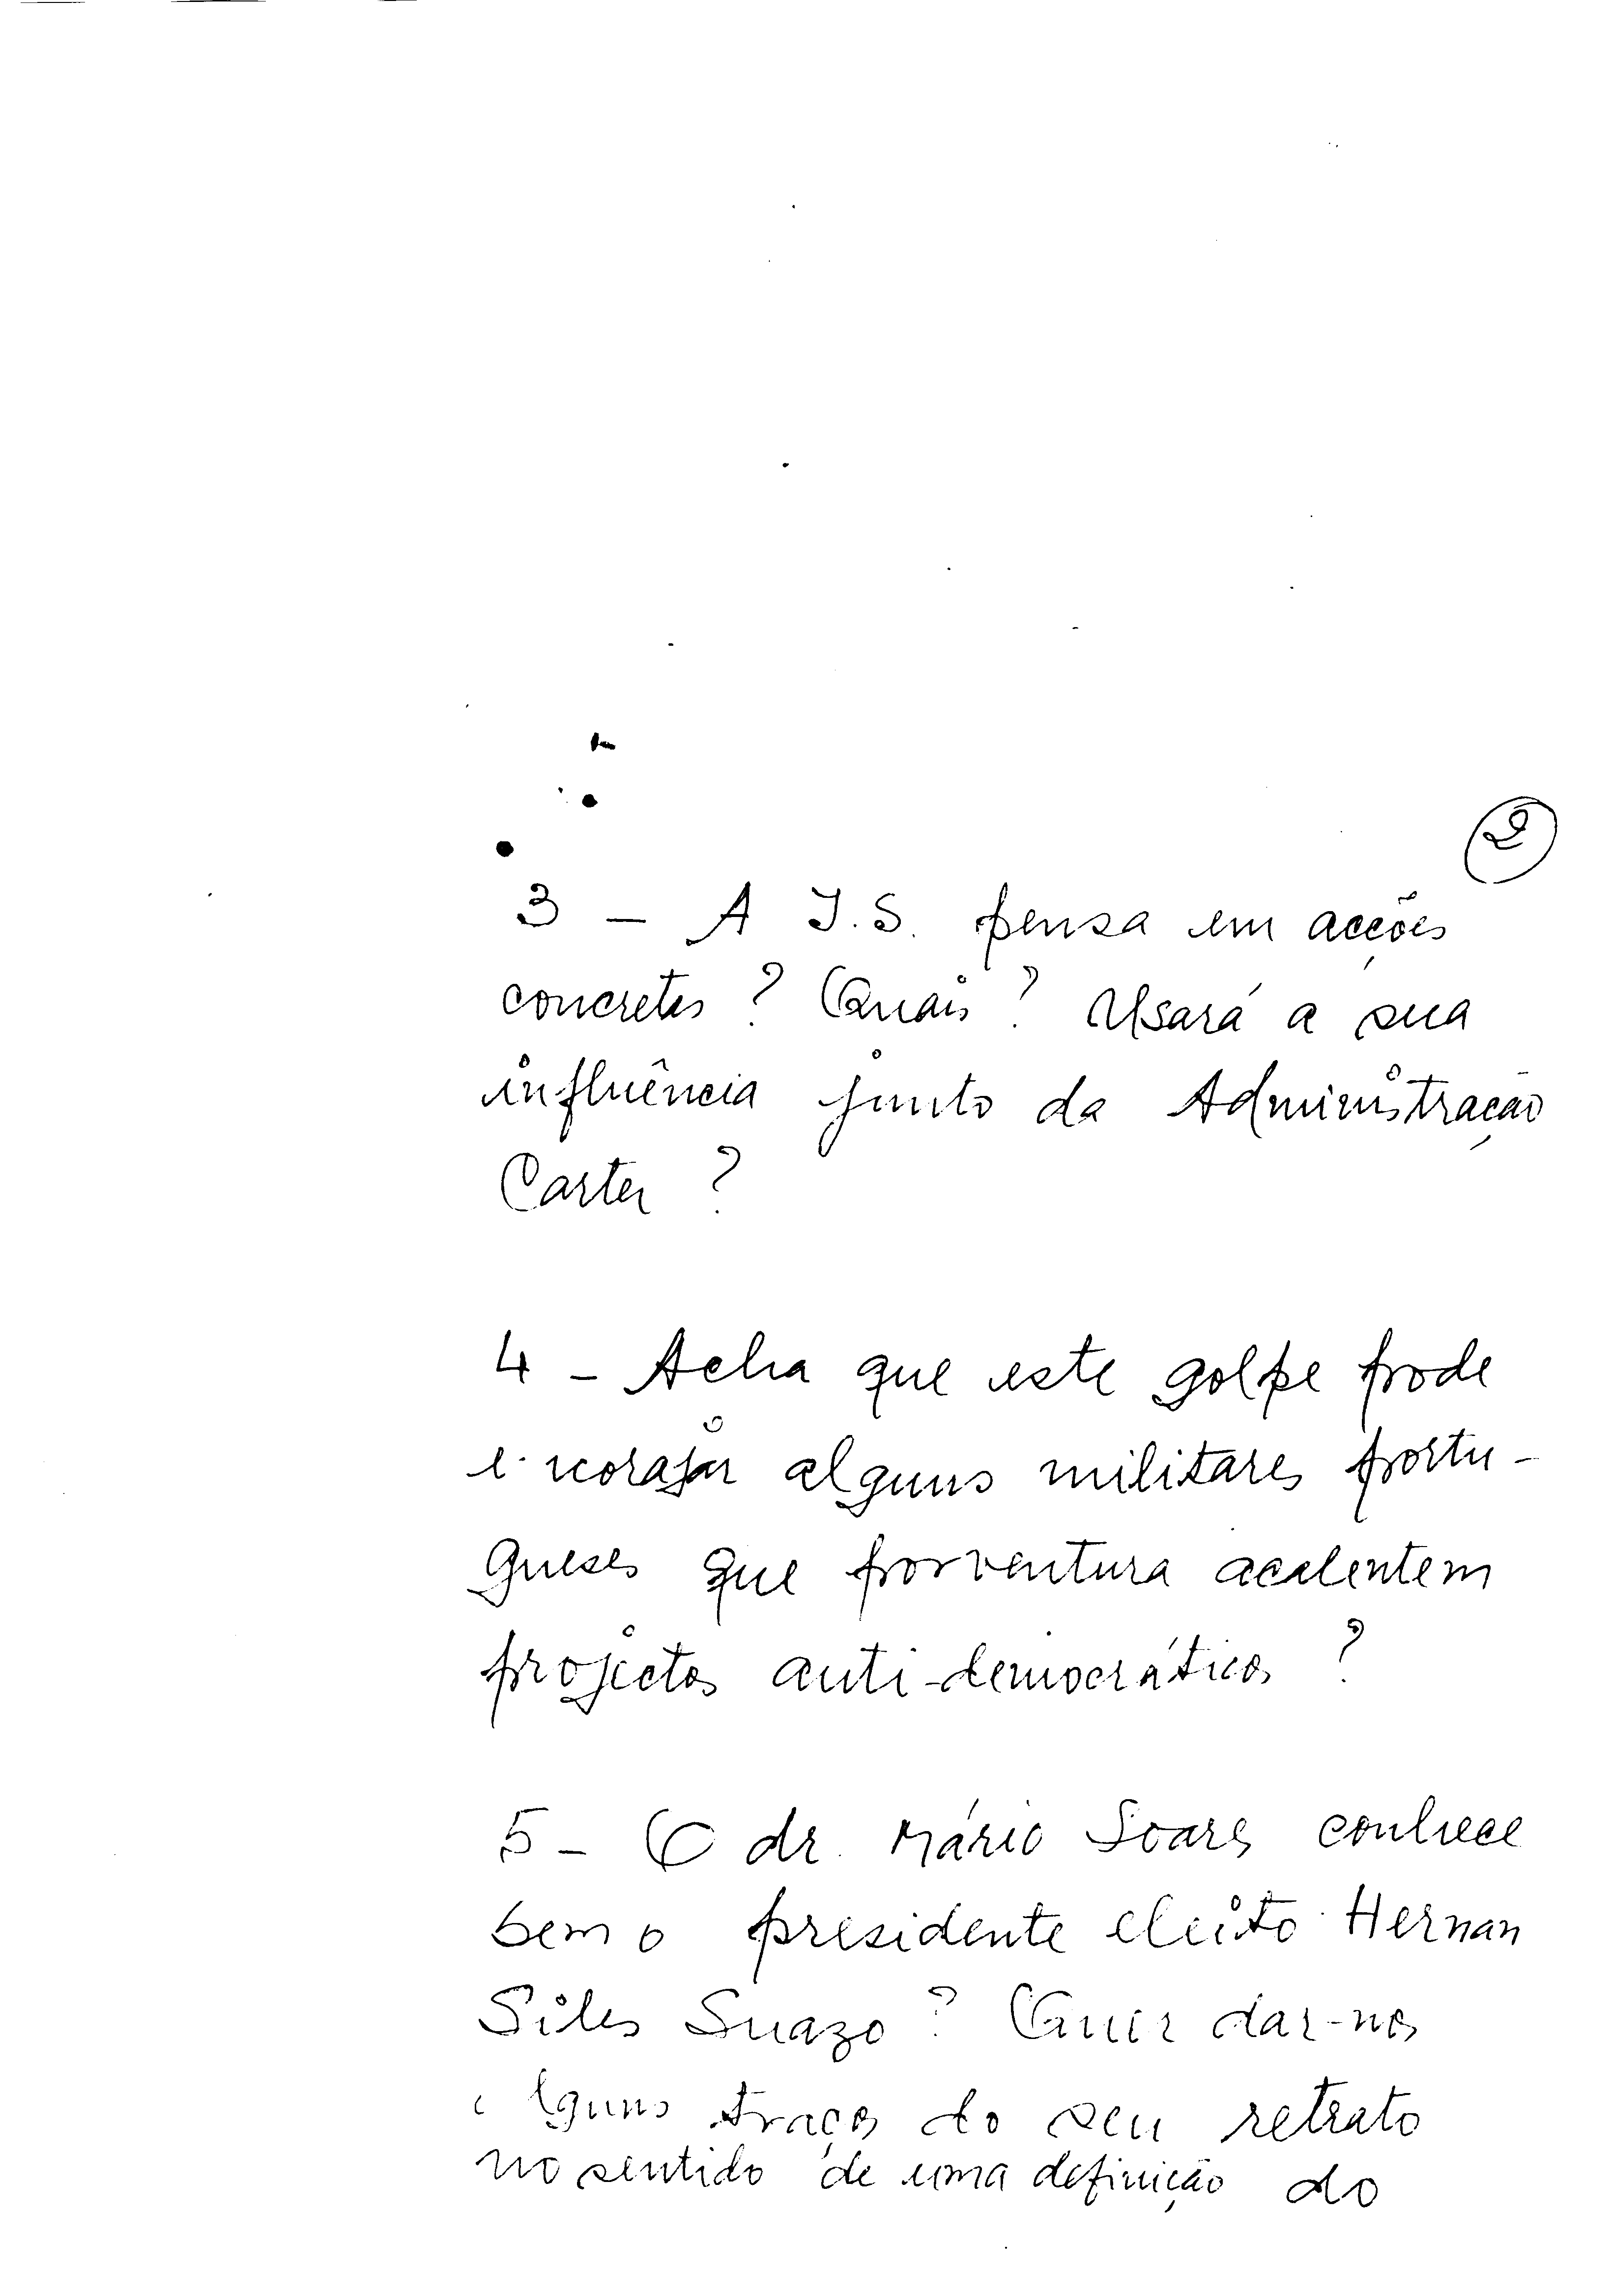 2
3 - A I.S. pensa em acções
concretas ? Quais ? Usará a sua
influência junto da Administração
Carter ?
4 - Acha que este golpe pode
encorajar alguns militares portu-
gueses que porventura acalentem
projectos anti-democráticos ?
5 - O dr. Mário Soares conhece
bem o presidente eleito Hernan
Siles Suazo ? Quer dar-nos
alguns traços do seu retrato
no sentido de uma definição do